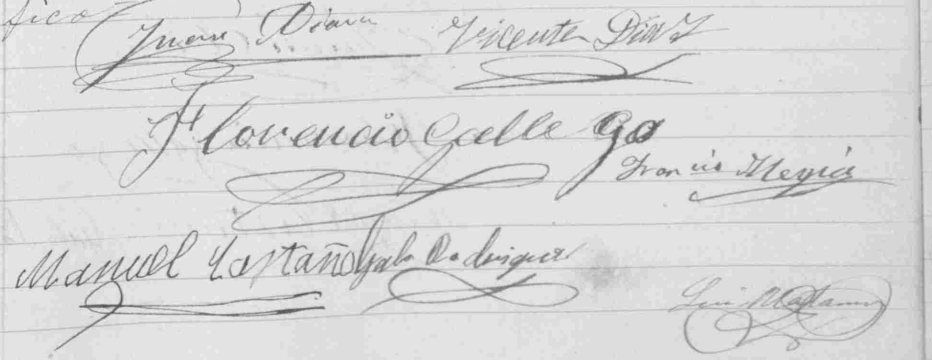 fico
Juan Diana Vicente Diaz
Florencio Gallego
Francis Megia
Manuel Castaño Galo Rodriguez
Luis